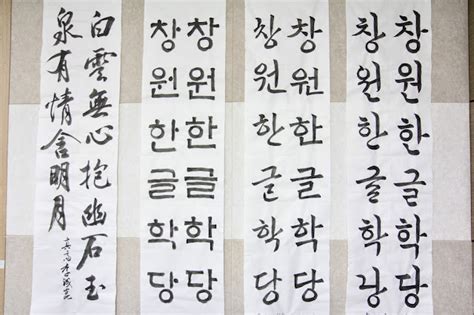 白雲無心抱幽石玉
泉有情含明月
창원한글학당
창원한글학당
창원한글학당
창원한글학당
창원한글학당
창원한글학당